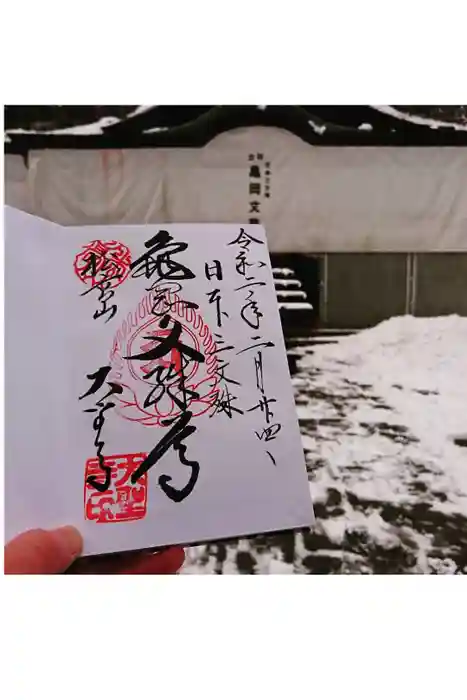 令和二年二月廿四日
日本三文殊
亀岡文殊尊
松高山
大聖寺
大聖寺印
亀岡文